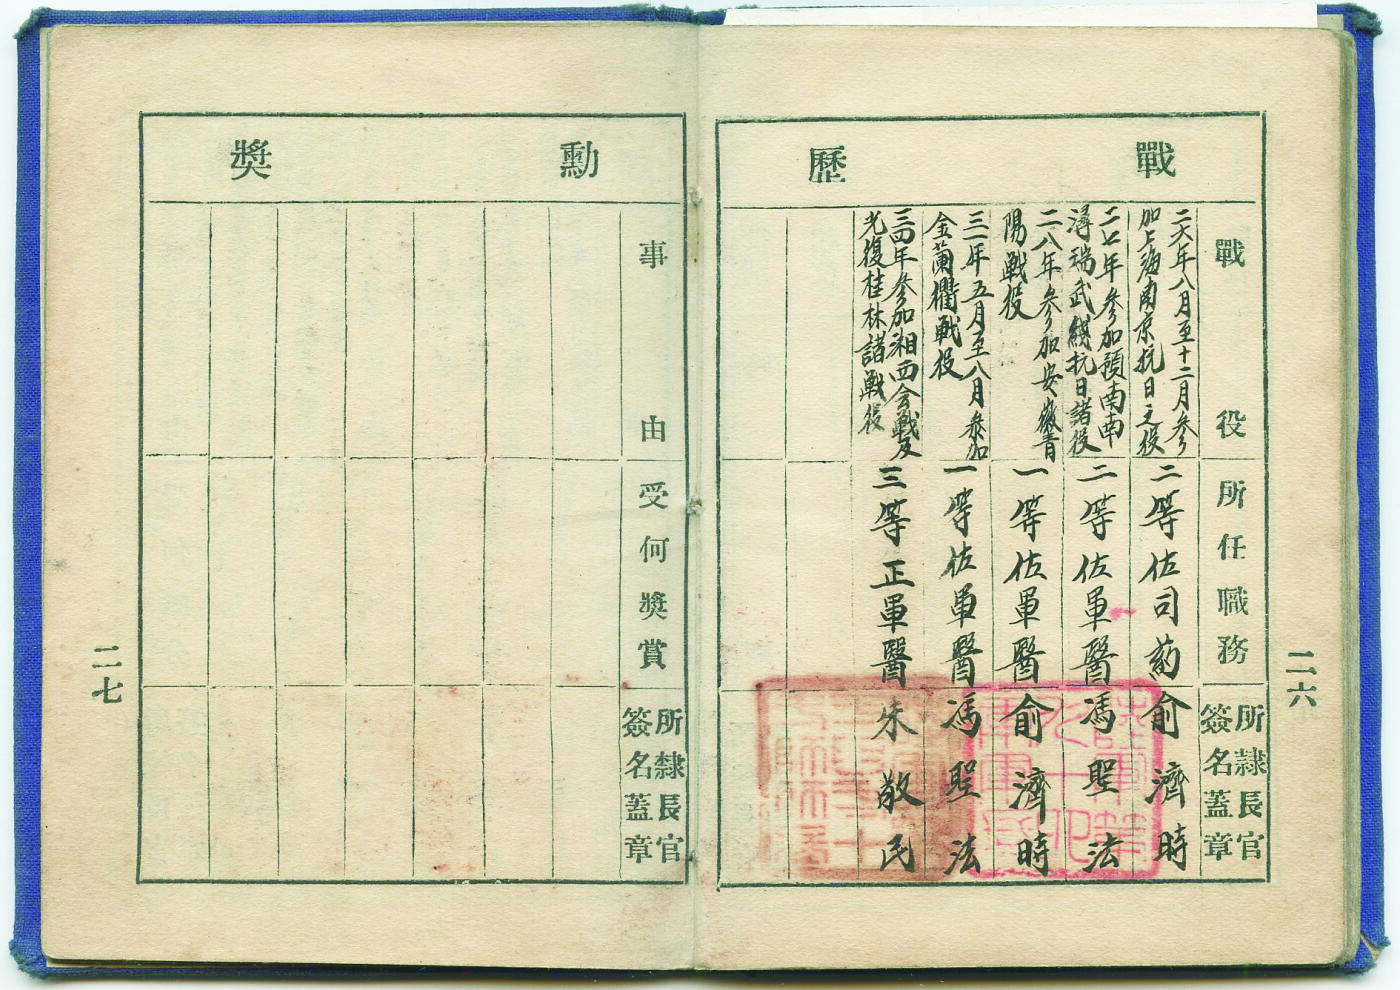 戰歷
戰役
所任職務
所隸長官
簽名蓋章
二六年八月至十二月參
加上海南京抗日之役
二等佐司葯
俞濟時
二七年參加預南南
潯瑞武綫抗日諸役
二等佐軍醫
馮聖法
二八年參加安徽青
陽戰役
一等佐軍醫
俞濟時
三一年五月至八月參加
金蘭衢戰役
一等佐軍醫
馮聖法
三四年參加湘西会戰及
光復桂林諸戰役
三等正軍醫
朱敬民
二六
勳獎
事由
受何獎賞
所隸長官
簽名蓋章
二七